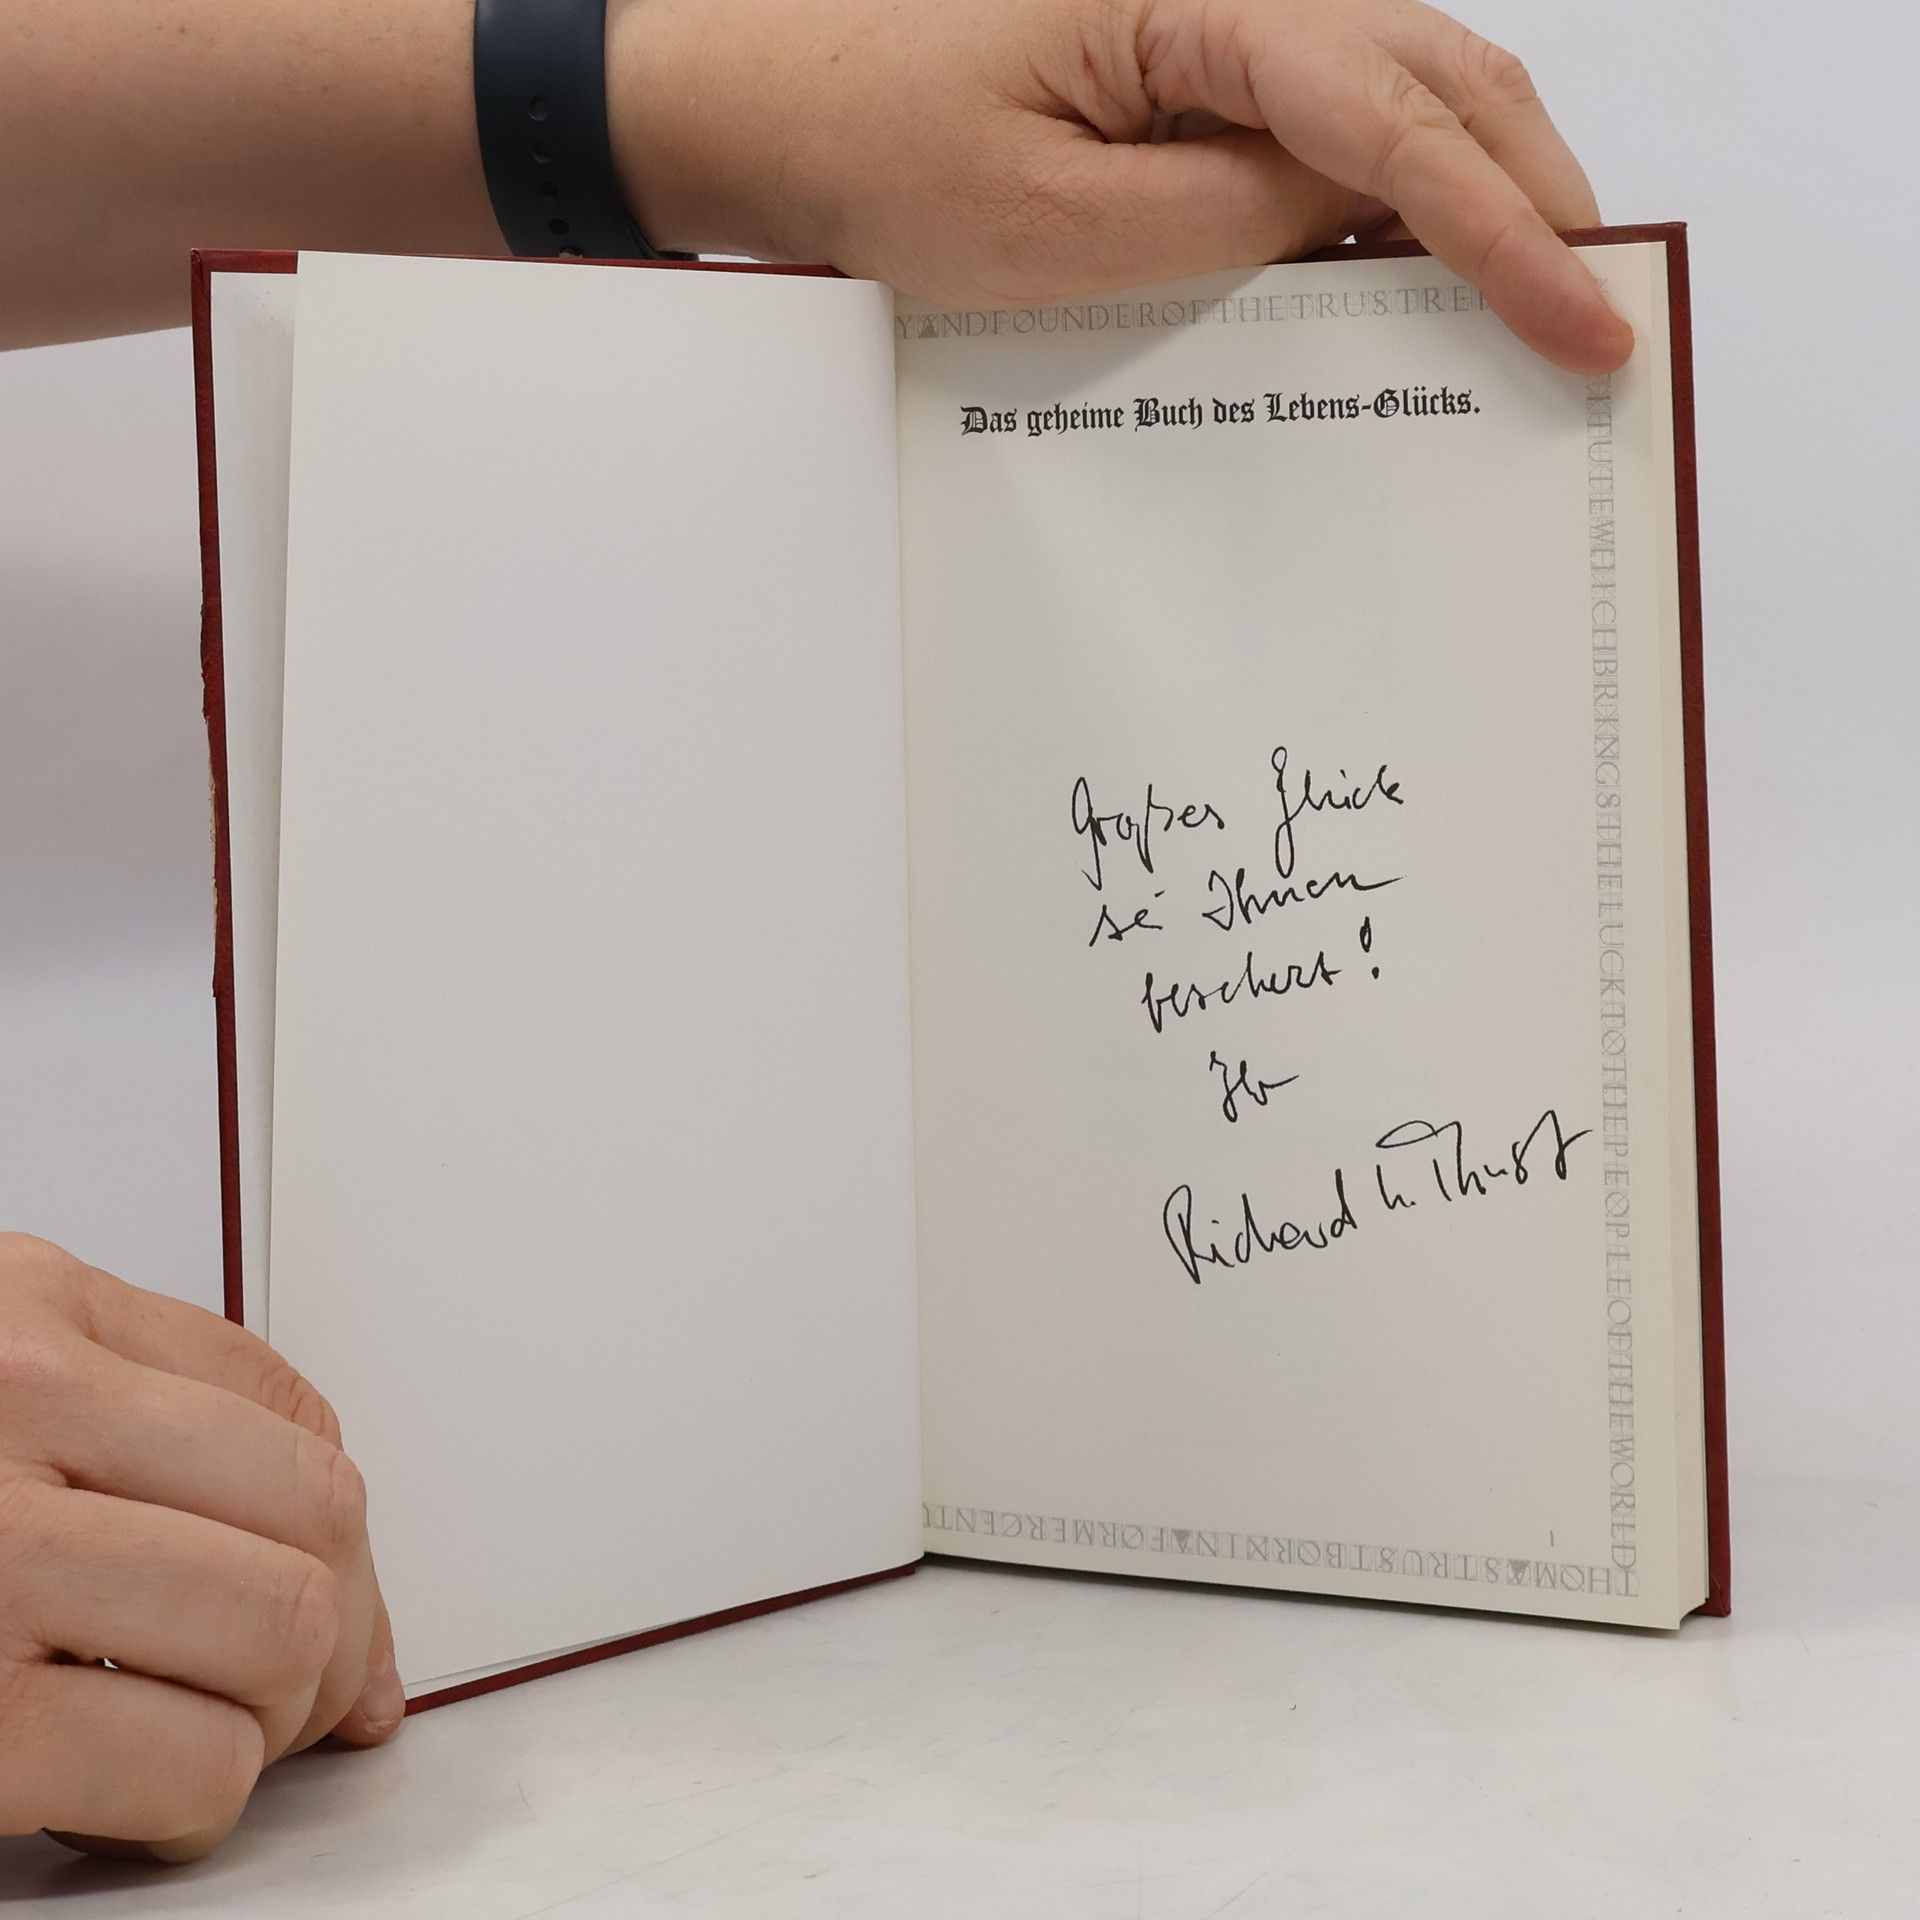 YANDFOUNDEROFTHETRUSTRE
Das geheime Buch des Lebens-Glücks.
Großes Glück
sei Ihnen
beschert!
Ihr
Richard W. Thrust
BRINGSTHELUCKTOTHEPEOPLEOFTHEWORLD
THOMASTRUSTBORNINAFORMERCENTU
1